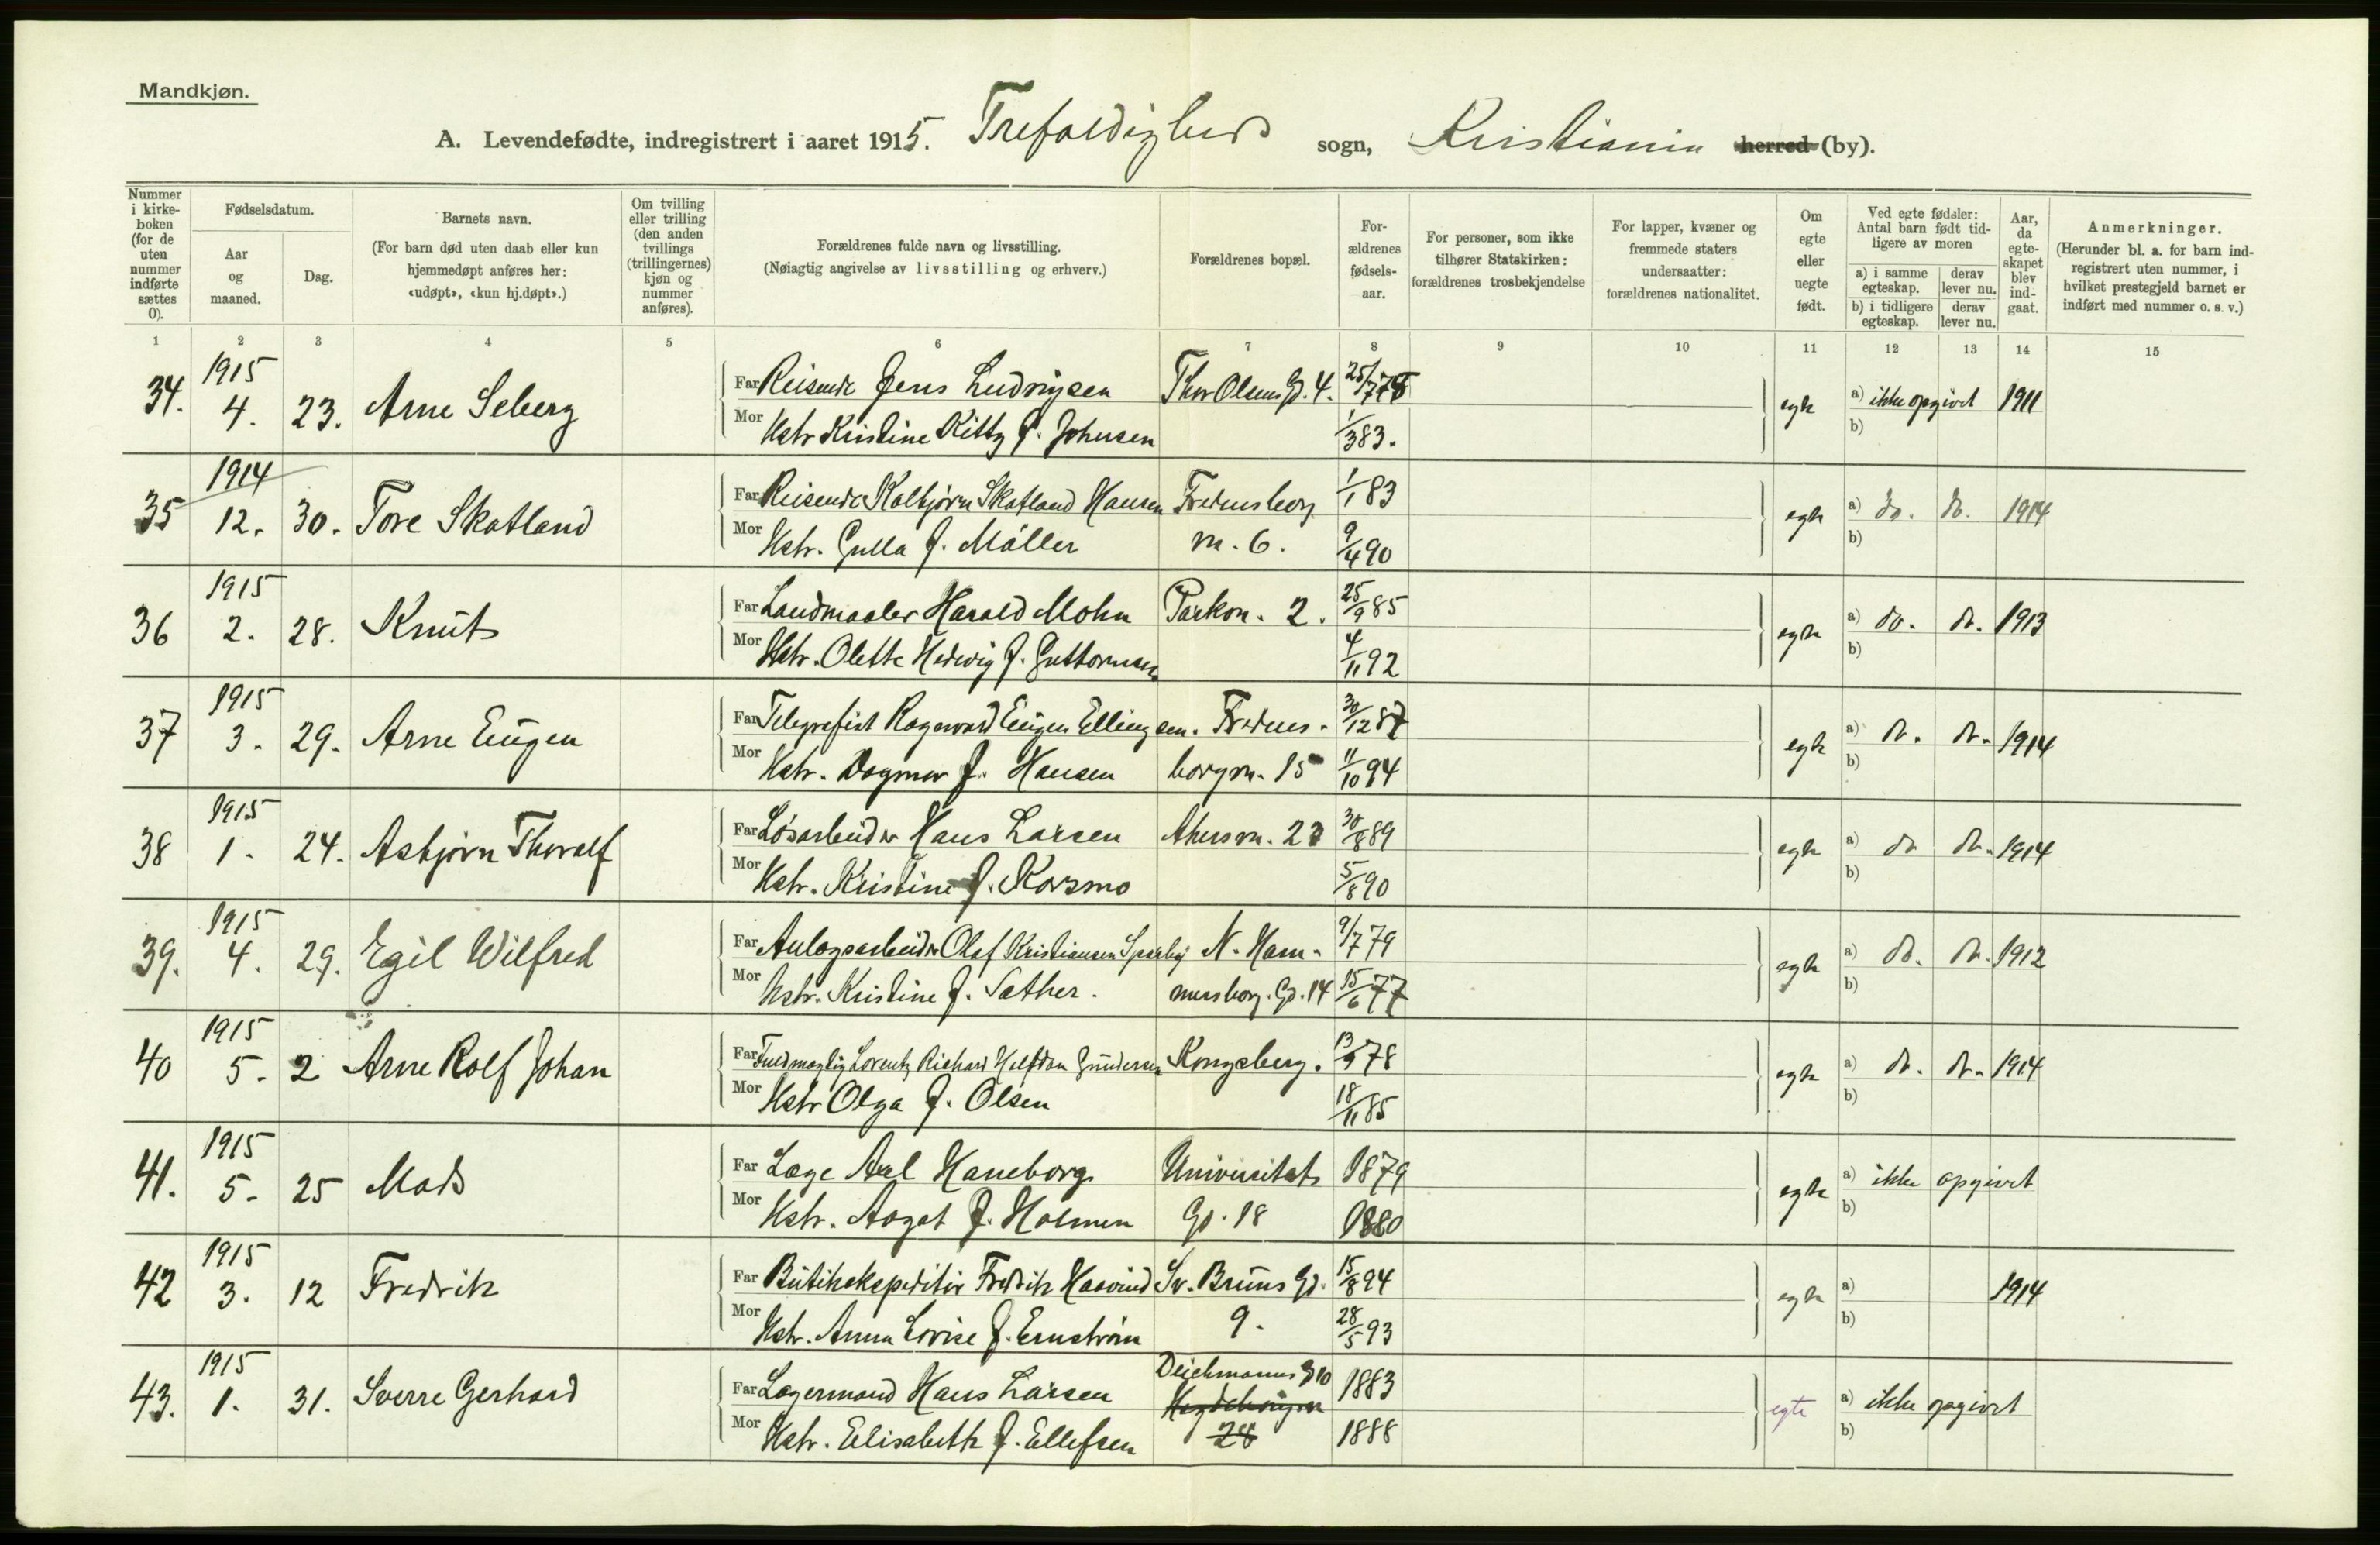 Mandkjøn.
A. Levendefødte, indregistrert i aaret 1915. Trefoldigheds sogn, Kristiania herred (by).
Nummer i kirke-boken (for de uten nummer indførte sættes 0).
Fødselsdatum.
Aar og maaned.
Dag.
Barnets navn.
(For barn død uten daab eller kun hjemmedøpt anføres her: «udøpt», «kun hj.døpt».)
Om tvilling eller trilling (den anden tvillings (trillingernes) kjøn og nummer anføres).
Forældrenes fulde navn og livsstilling.
(Nøiagtig angivelse av livsstilling og erhverv.)
Forældrenes bopæl.
For-ældrenes fødsels-aar.
For personer, som ikke tilhører Statskirken: forældrenes trosbekjendelse
For lapper, kvæner og fremmede staters undersaatter: forældrenes nationalitet.
Om egte eller uegte født.
Ved egte fødsler: Antal barn født tid-ligere av moren
a) i samme egteskap.
derav lever nu.
b) i tidligere egteskap.
derav lever nu.
Aar, da egte-skapet blev ind-gaat.
Anmerkninger.
(Herunder bl. a. for barn ind-registrert uten nummer, i hvilket prestegjeld barnet er indført med nummer o. s. v.)
1 2 3 4 5 6 7 8 9 10 11 12 13 14 15
34. 1915 4. 23. Arne Seberg
Far Reisende Jens Ludvigsen Thor Olsens Gd. 4. 25/7 78 egte a) ikke opgivet 1911
Mor Hstr Kristine Kitty f. Johnsen 1/3 83. b)
35 1914 12. 30. Tore Skatland
Far Reisende Kolbjørn Skatland Hansen Fredensborg 1/1 83 egte a) do. do. 1914
Mor Hstr. Gulla f. Møller vn. 6. 9/4 90 b)
36 1915 2. 28. Knut
Far Landmaaler Harald Mohn Parkvn. 2. 25/9 85 egte a) do. do. 1913
Mor Hstr. Olette Hedvig f. Guttormsen 4/11 92 b)
37 1915 3. 29. Arne Eugen
Far Telegrafist Ragnvard Eugen Ellingsen. Fredens- 30/12 87 egte a) do. do. 1914
Mor Hstr. Dagmar f. Hansen borgvn. 15 11/10 94 b)
38 1915 1. 24. Asbjørn Thoralf
Far Løsarbeider Hans Larsen Akersvn. 23 30/8 89 egte a) do do. 1914
Mor Hstr. Kristine f. Korsmo 5/8 90 b)
39. 1915 4. 29. Egil Wilfred
Far Anlægsarbeider Olaf Kristiansen N. Ham- 9/7 79 egte a) do. do. 1912
Mor Hstr. Kristine f. Sæther. mersborg. Gd. 14 15/6 77 b)
40 1915 5. 2 Arne Rolf Johan
Far Fuldmægtig Lorentz Richard Halfdan Gundersen Kongsberg. 13/9 78 egte a) do. do. 1914
Mor Hstr Olga f. Olsen 18/11 85 b)
41. 1915 5. 25 Mads
Far Læge Axel Haneborg Universitets 1879 egte a) ikke opgivet
Mor Hstr. Aagot f. Holmen Gd. 18 1880 b)
42 1915 3. 12 Fredrik
Far Butikekspeditør Fredrik Haavind Sv. Bruns Gd. 15/8 94 egte a) 1914
Mor Hstr. Anna Lovise f. Ernstrøm 9. 28/5 93 b)
43. 1915 1. 31. Sverre Gerhard
Deichmans g 10
Far Lagermand Hans Larsen 1883 egte a) ikke opgivet
Mor Hstr. Elisabeth f. Ellefsen 28 1888 b)